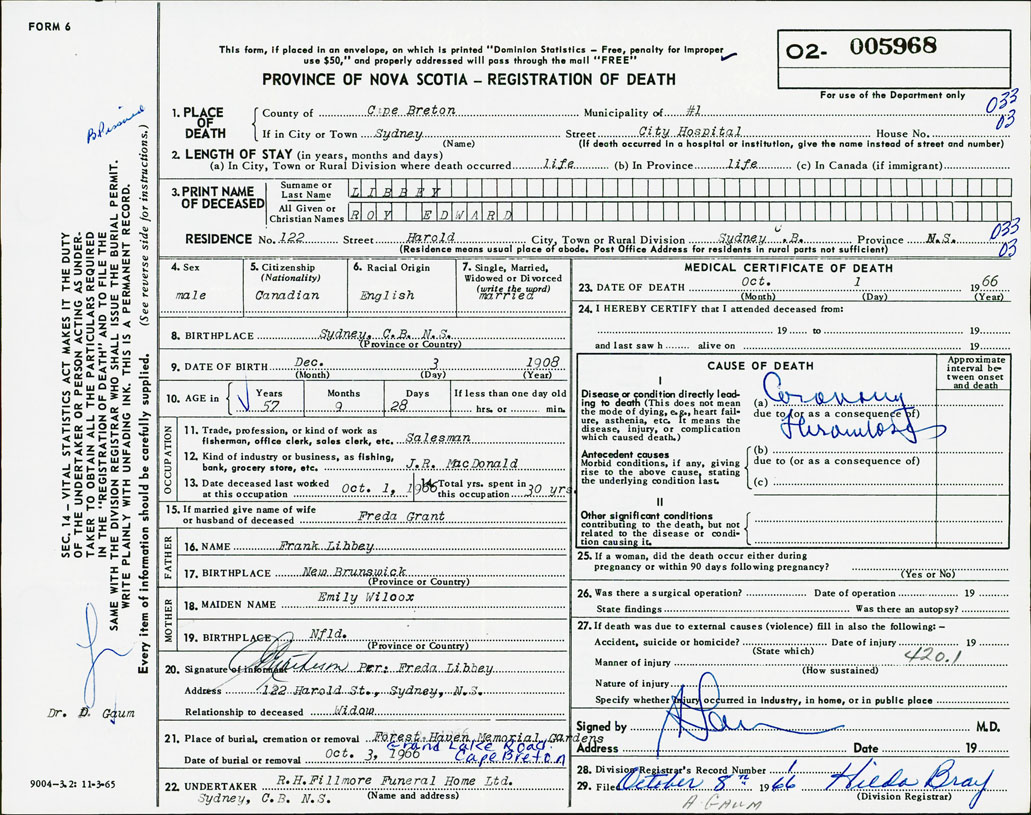 FORM 6
This form, if placed in an envelope, on which is printed "Dominion Statistics – Free, penalty for improper
use $50," and properly addressed will pass through the mail "FREE"
PROVINCE OF NOVA SCOTIA – REGISTRATION OF DEATH
O2- 005968
For use of the Department only
033
03
1. PLACE OF DEATH
County of Cape Breton Municipality of #1
If in City or Town Sydney Street City Hospital House No.
(Name) (If death occurred in a hospital or institution, give the name instead of street and number)
2. LENGTH OF STAY (in years, months and days)
(a) In City, Town or Rural Division where death occurred life (b) In Province life (c) In Canada (if immigrant)
3. PRINT NAME OF DECEASED
Surname or Last Name LIBBEY
All Given or Christian Names ROY EDWARD
RESIDENCE No. 122 Street Harold City, Town or Rural Division Sydney C.B. Province N.S.
(Residence means usual place of abode. Post Office Address for residents in rural parts not sufficient)
033
03
4. Sex
male
5. Citizenship
(Nationality)
Canadian
6. Racial Origin
English
7. Single, Married,
Widowed or Divorced
(write the word)
married
8. BIRTHPLACE Sydney, C.B. N.S.
(Province or Country)
9. DATE OF BIRTH Dec. 3 1908
(Month) (Day) (Year)
10. AGE in
Years Months Days If less than one day old
57 9 28 hrs. or min.
OCCUPATION
11. Trade, profession, or kind of work as
fisherman, office clerk, sales clerk, etc. Salesman
12. Kind of industry or business, as fishing,
bank, grocery store, etc. J.R. MacDonald
13. Date deceased last worked
at this occupation Oct. 1, 1966
14. Total yrs. spent in
this occupation 30 yrs.
15. If married give name of wife
or husband of deceased Freda Grant
FATHER
16. NAME Frank Libbey
17. BIRTHPLACE New Brunswick
(Province or Country)
MOTHER
18. MAIDEN NAME Emily Wilcox
19. BIRTHPLACE Nfld.
(Province or Country)
20. Signature of informant Per: Freda Libbey
Address 122 Harold St., Sydney, N.S.
Relationship to deceased Widow
21. Place of burial, cremation or removal Forest Haven Memorial Gardens
Grand Lake Road
Date of burial or removal Oct. 3, 1966 Cape Breton
22. UNDERTAKER R.H.Fillmore Funeral Home Ltd.
Sydney, C.B. N.S. (Name and address)
MEDICAL CERTIFICATE OF DEATH
23. DATE OF DEATH Oct. 1 1966
(Month) (Day) (Year)
24. I HEREBY CERTIFY that I attended deceased from:
19 to 19
and last saw h alive on 19
CAUSE OF DEATH
Approximate
interval be-
tween onset
and death
I
Disease or condition directly lead-
ing to death (This does not mean
the mode of dying, e.g., heart fail-
ure, asthenia, etc. It means the
disease, injury, or complication
which caused death.)
(a) Coronary
due to (or as a consequence of)
Thrombosis
Antecedent causes
Morbid conditions, if any, giving
rise to the above cause, stating
the underlying condition last.
(b)
due to (or as a consequence of)
(c)
II
Other significant conditions
contributing to the death, but not
related to the disease or condi-
tion causing it.
25. If a woman, did the death occur either during
pregnancy or within 90 days following pregnancy?
(Yes or No)
26. Was there a surgical operation? Date of operation 19
State findings Was there an autopsy?
27. If death was due to external causes (violence) fill in also the following: –
Accident, suicide or homicide? Date of injury 19
(State which)
420.1
Manner of injury
(How sustained)
Nature of injury
Specify whether injury occurred in industry, in home, or in public place
Signed by M.D.
Address Date 19
28. Division Registrar's Record Number 1
29. Filed October 8th 1966 Hilda Bray
(Division Registrar)
A GAUM
SEC. 14 – VITAL STATISTICS ACT MAKES IT THE DUTY
OF THE UNDERTAKER OR PERSON ACTING AS UNDER-
TAKER TO OBTAIN ALL THE PARTICULARS REQUIRED
IN THE "REGISTRATION OF DEATH" AND TO FILE THE
SAME WITH THE DIVISION REGISTRAR WHO SHALL ISSUE THE BURIAL PERMIT.
WRITE PLAINLY WITH UNFADING INK. THIS IS A PERMANENT RECORD.
Every item of information should be carefully supplied. (See reverse side for instructions.)
Dr. D. Gaum
9004–3.2: 11-3-65